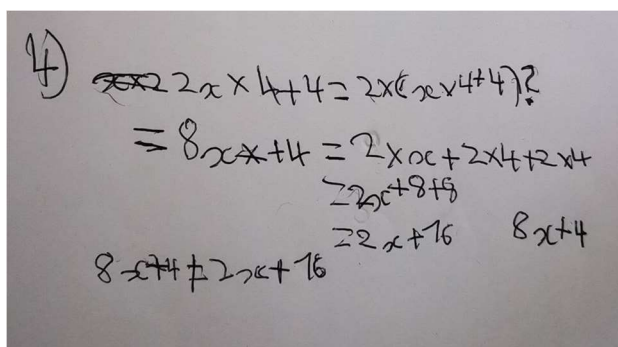 4) 2x×4+4=2×(x×4+4)?
=8x+4=2×x+2×4+2×4
=2x+8+8
=2x+16 8x+4
8x+4≠2x+16